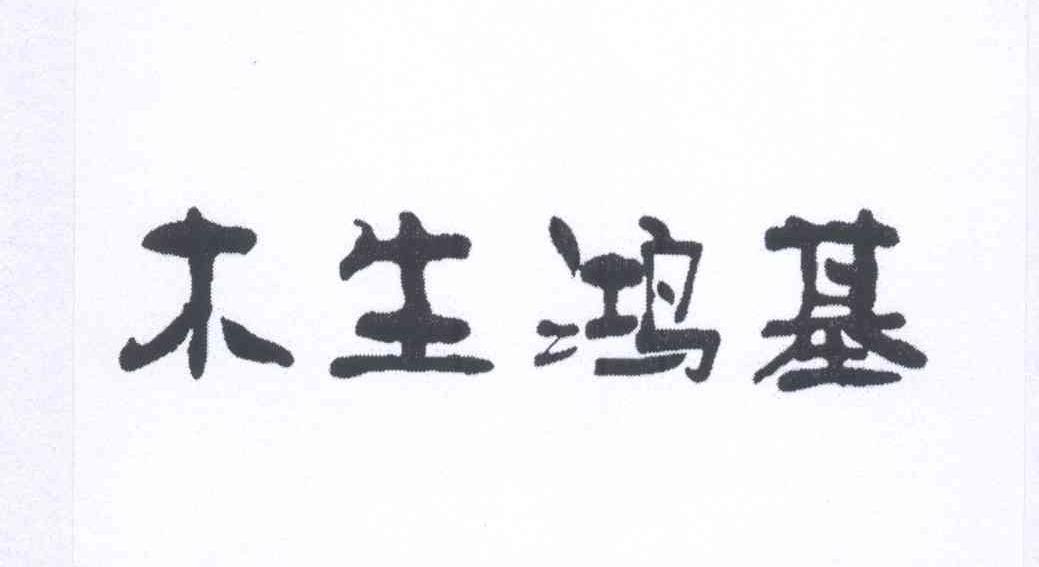 木生鸿基